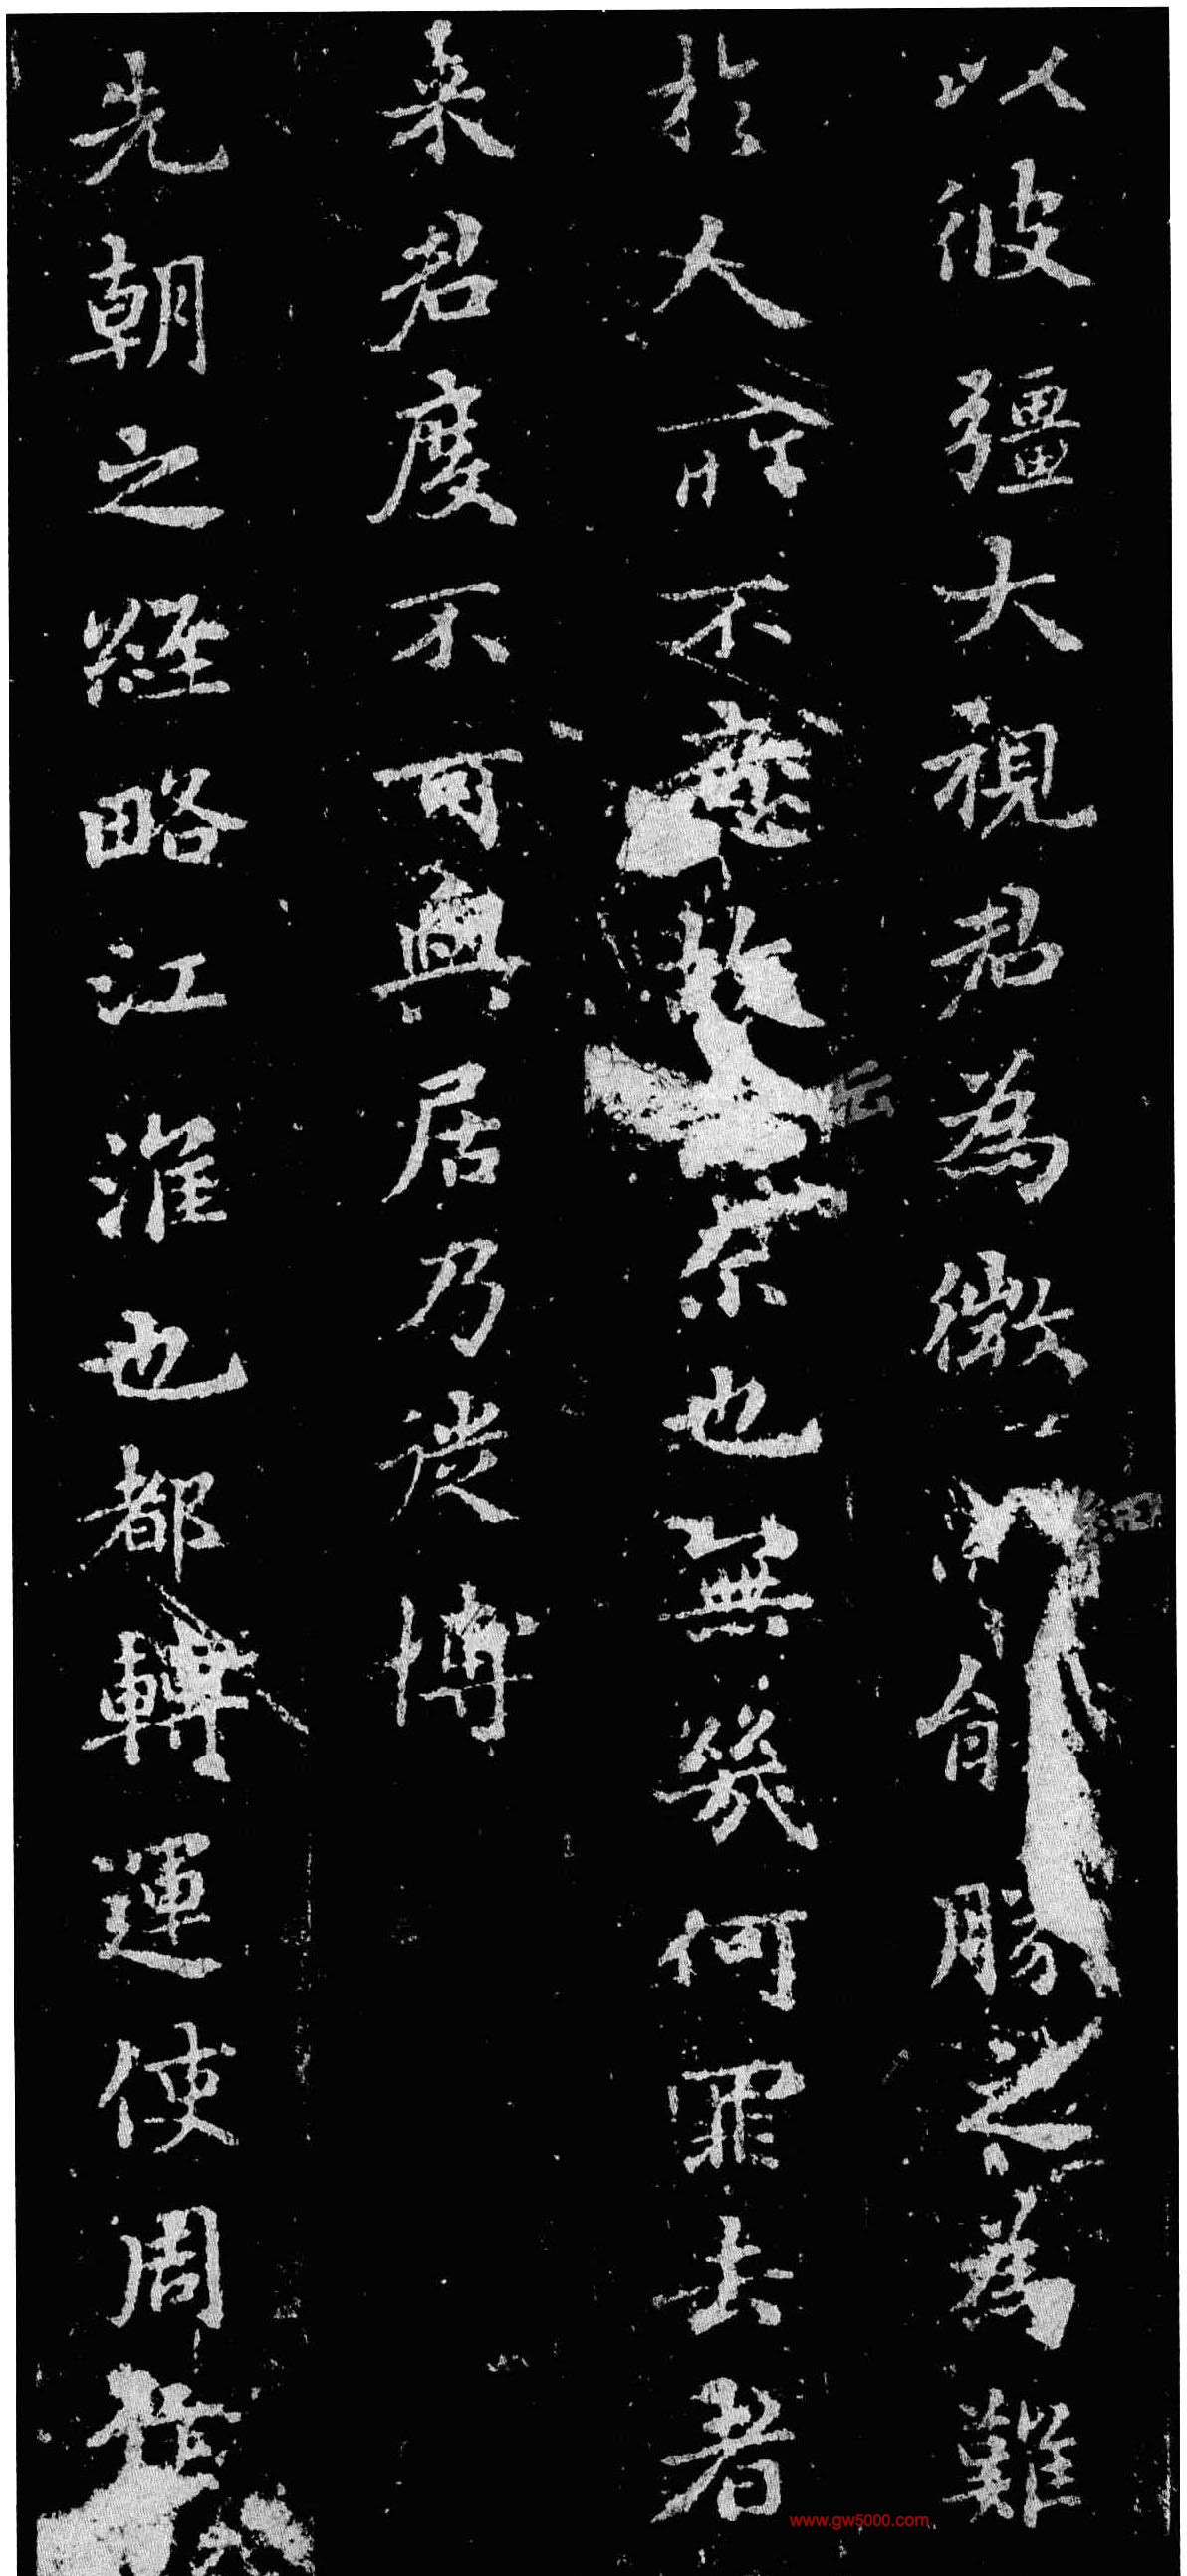 以彼彊大視君為微而自勝之為難
於人所不堪故也無幾何罪去者
来君度不可與居乃從博
先朝之經略江淮也都轉運使周
www.gw5000.com